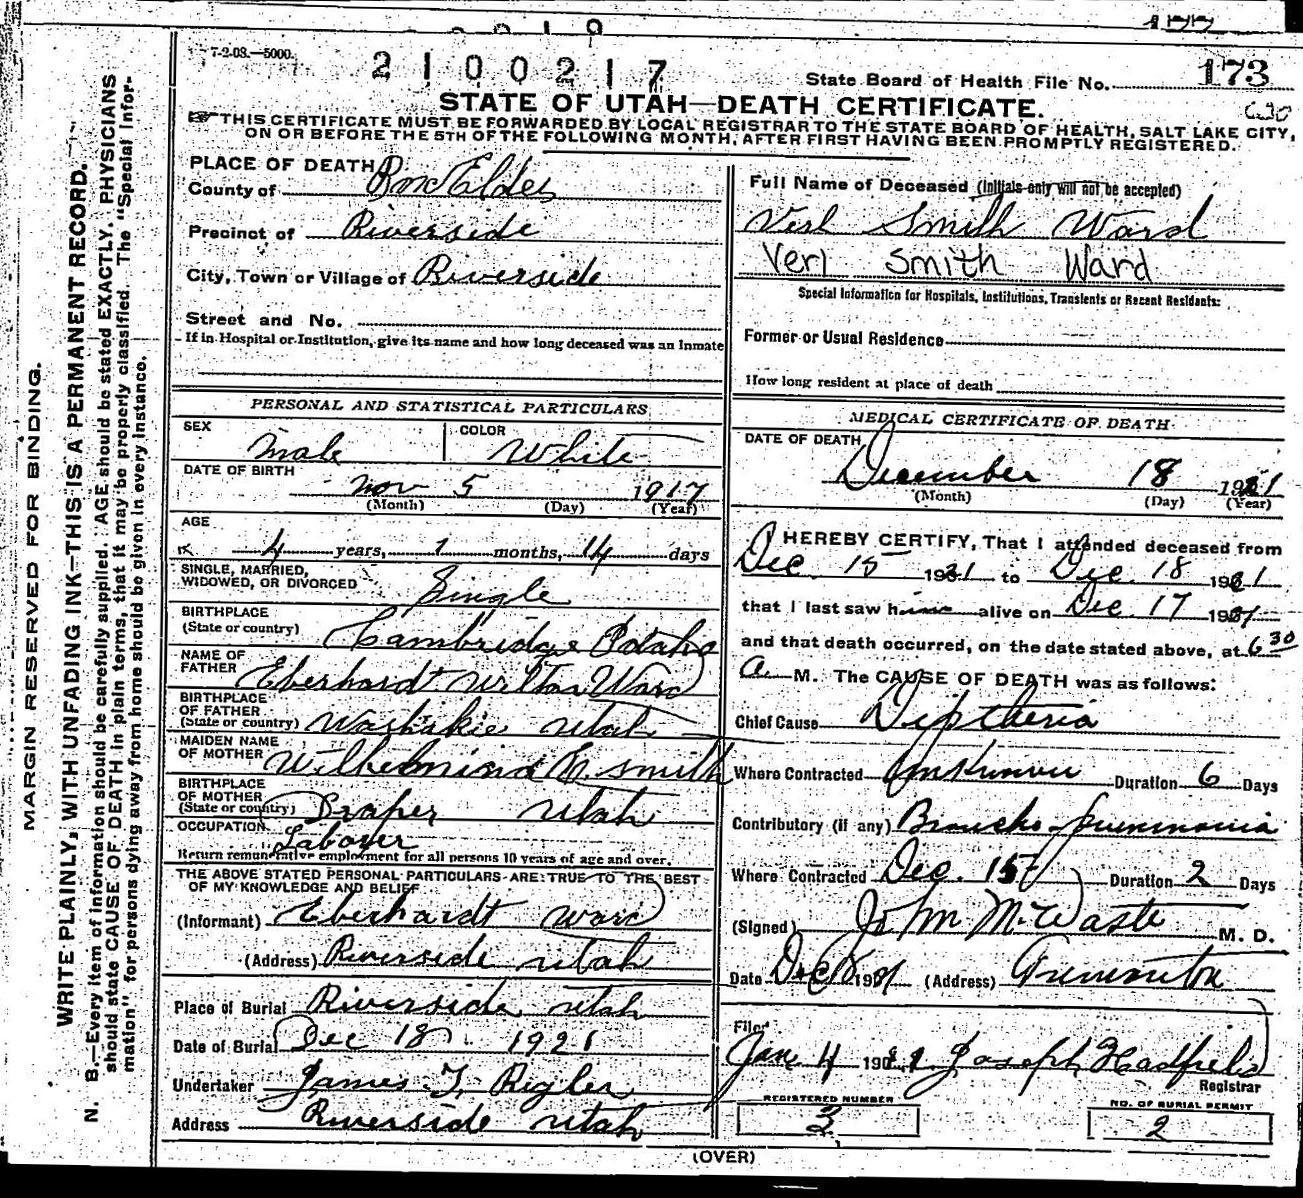 7-2-08.—5000.
2 1 0 0 2 1 7
State Board of Health File No. 173
STATE OF UTAH—DEATH CERTIFICATE.
THIS CERTIFICATE MUST BE FORWARDED BY LOCAL REGISTRAR TO THE STATE BOARD OF HEALTH, SALT LAKE CITY,
ON OR BEFORE THE 5TH OF THE FOLLOWING MONTH, AFTER FIRST HAVING BEEN PROMPTLY REGISTERED.
MARGIN RESERVED FOR BINDING.
WRITE PLAINLY, WITH UNFADING INK—THIS IS A PERMANENT RECORD.
N. B.—Every item of information should be carefully supplied. AGE should be stated EXACTLY. PHYSICIANS
should state CAUSE OF DEATH in plain terms, that it may be properly classified. The "Special Infor-
mation" for persons dying away from home should be given in every instance.
PLACE OF DEATH
County of Box Elder
Precinct of Riverside
City, Town or Village of Riverside
Street and No.
If in Hospital or Institution, give its name and how long deceased was an Inmate
Full Name of Deceased (Initials only will not be accepted)
Verl Smith Ward
Verl Smith Ward
Special Information for Hospitals, Institutions, Transients or Recent Residents:
Former or Usual Residence
How long resident at place of death
PERSONAL AND STATISTICAL PARTICULARS
SEX Male COLOR White
DATE OF BIRTH
Nov 5 1917
(Month) (Day) (Year)
AGE
4 years, 1 months, 14 days
SINGLE, MARRIED,
WIDOWED, OR DIVORCED Single
BIRTHPLACE
(State or country) Cambridge Idaho
NAME OF
FATHER Eberhardt Wilton Ward
BIRTHPLACE
OF FATHER
(State or country) Washakie Utah
MAIDEN NAME
OF MOTHER Wilhelmina E. Smith
BIRTHPLACE
OF MOTHER
(State or country) Draper Utah
OCCUPATION Laborer
Return remunerative employment for all persons 10 years of age and over.
THE ABOVE STATED PERSONAL PARTICULARS ARE TRUE TO THE BEST
OF MY KNOWLEDGE AND BELIEF
(Informant) Eberhardt Ward
(Address) Riverside Utah
Place of Burial Riverside Utah
Date of Burial Dec 18 1921
Undertaker James T. Rigler
Address Riverside Utah
MEDICAL CERTIFICATE OF DEATH
DATE OF DEATH
December 18 1921
(Month) (Day) (Year)
I HEREBY CERTIFY, That I attended deceased from
Dec. 15 1921 to Dec. 18 1921
that I last saw him alive on Dec 17 1921
and that death occurred, on the date stated above, at 6 30
a. M. The CAUSE OF DEATH was as follows:
Chief Cause Diptheria
Where Contracted Unknown Duration 6 Days
Contributory (if any) Broncho-pneumonia
Where Contracted Dec. 15 Duration 2 Days
(Signed) John M. Waste M. D.
Date Dec 18 1921 (Address) Tremonton
Filed
Jan 4 Joseph Hadfield
Registrar
REGISTERED NUMBER
3
NO. OF BURIAL PERMIT
2
(OVER)